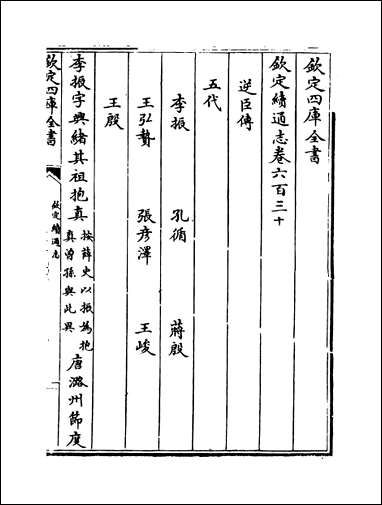 欽定四庫全書
欽定續通志卷六百三十
逆臣傳
五代
李振 孔循 蔣殷
王弘贄 張彦澤 王峻
王殷
李振字興緒其祖抱真按薛史以振為抱真曽孫與此異唐潞州節度
欽定四庫全書
欽定續通志
一